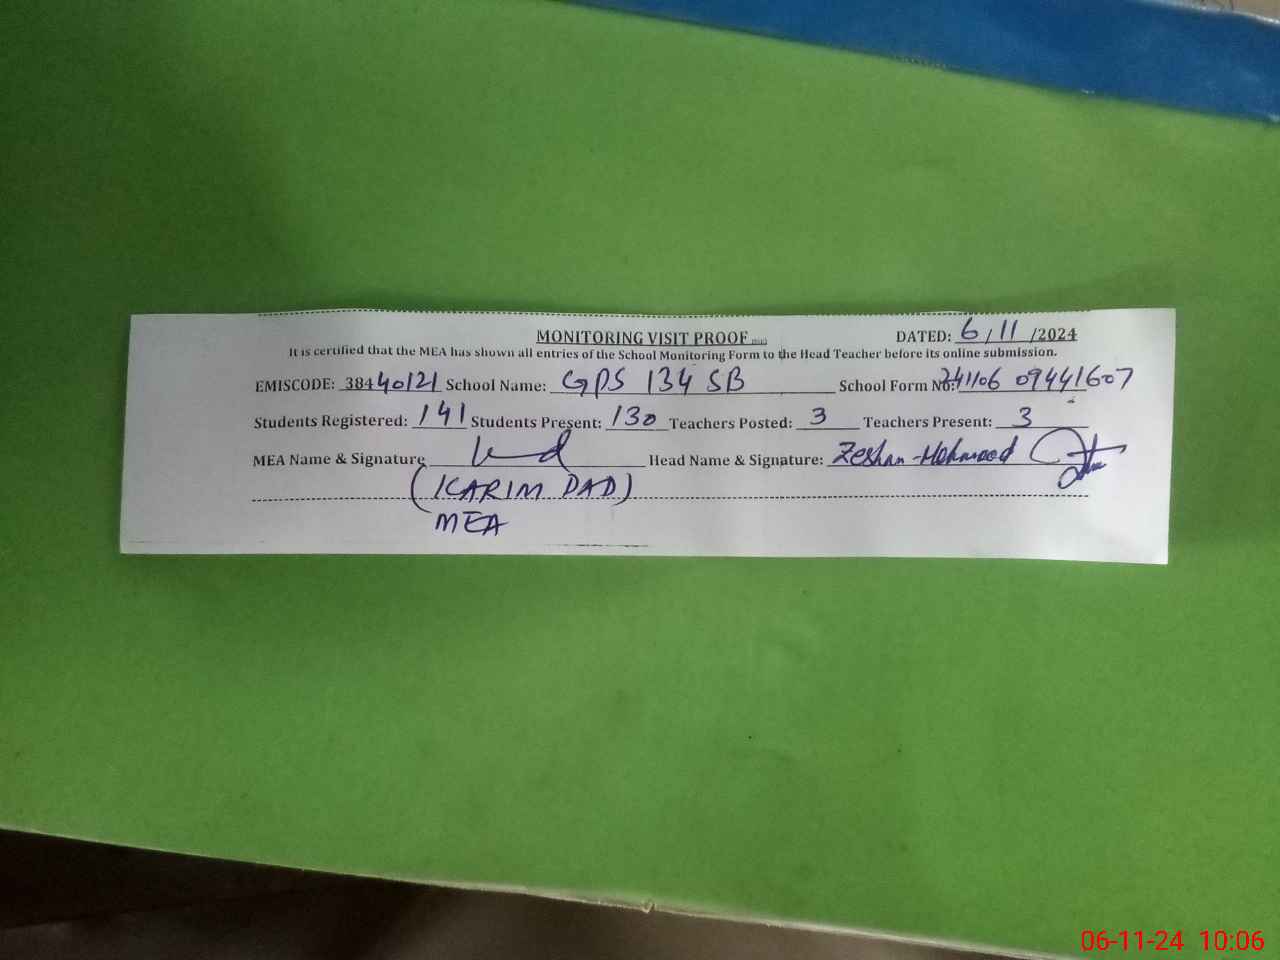 MONITORING VISIT PROOF DATED: 6/11/2024
It is certified that the MEA has shown all entries of the School Monitoring Form to the Head Teacher before its online submission.
EMISCODE: 38440121 School Name: GPS 134 SB School Form No: 241106 09441607
Students Registered: 141 Students Present: 130 Teachers Posted: 3 Teachers Present: 3
MEA Name & Signature Head Name & Signature: Zeshan Mehmood
(KARIM DAD)
MEA
06-11-24 10:06